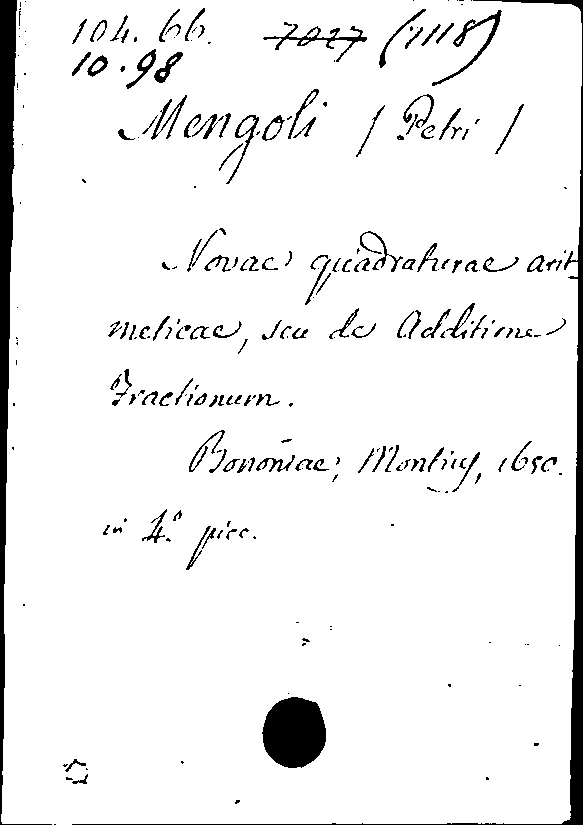 104. 66. 7027 (7118)
10.98
Mengoli / Petri /
Novae quadraturae arit-
meticae, seu de Additione
Fractionum.
Bononiae, Montiy, 1650.
in 4.° picc.